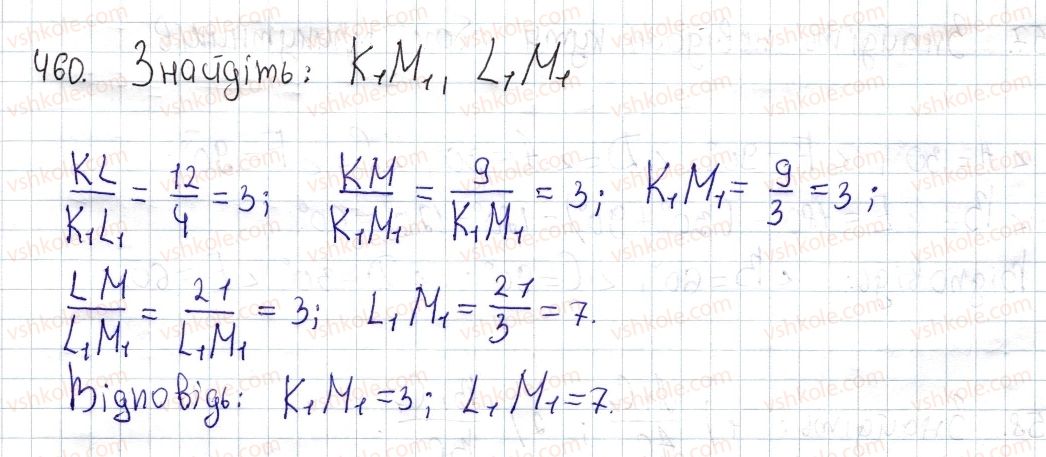 460. Знайдіть: K₁M₁, L₁M₁
KL/K₁L₁ = 12/4 = 3; KM/K₁M₁ = 9/K₁M₁ = 3; K₁M₁ = 9/3 = 3;
LM/L₁M₁ = 21/L₁M₁ = 3; L₁M₁ = 21/3 = 7.
Відповідь: K₁M₁ = 3; L₁M₁ = 7.